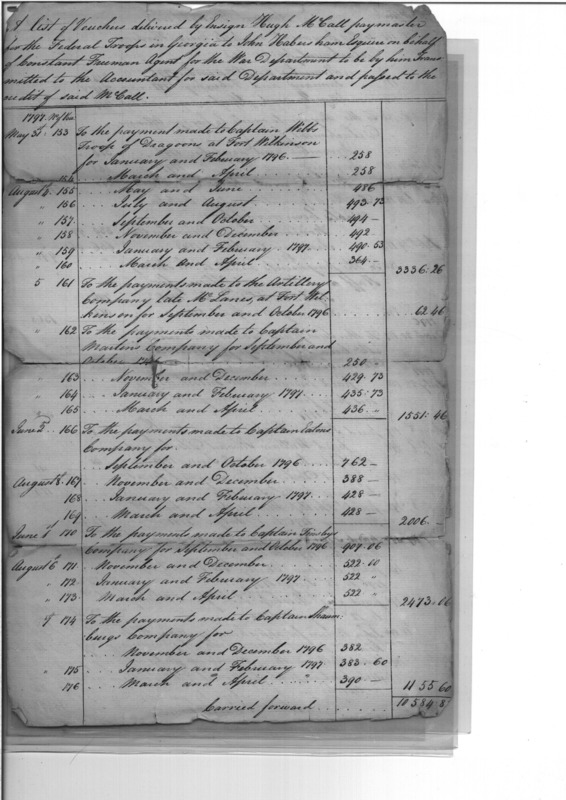 A List of Vouchers delivered by Ensign Hugh McCall paymaster
for the Federal Troops in Georgia to John Habersham Esquire on behalf
of Constant Freeman Agent for the War Department to be by him Trans
mitted to the Accountant for said Department and passed to the
credit of said McCall.
1797
May 153 To the payment made to Captain Webb
Troop of Dragoons at Fort Wilkinson
for January and February 1796. 258
154 March and April 258
August 155 May and June 486
" 156 July and August 493.73
" 157 September and October 494 —
" 158 November and December 492
" 159 January and February 1797 490.53
" 160 March and April 364 — 3336.26
5 161 To the payments made to the Artillery
Company late McLanes, at Fort Wil
kinson for September and October 1796 62.46
" 162 To the payments made to Captain
Martins Company for September and
October 1796 250 —
" 163 November and December 429.73
" 164 January and February 1797 435.73
" 165 March and April 436 — 1551.46
June 166 To the payments made to Captain Eatons
Company for
September and October 1796 762 —
August 167 November and December 388 —
168 January and February 1797 428 —
169 March and April 428 — 2006 —
June 170 To the payments made to Captain
Company for September and October 1796 907.06
August 6 171 November and December 522.10
" 172 January and February 1797 522 "
" 173 March and April 522 " 2473.06
174 To the payments made to Captain Shaum
burgs Company for
November and December 1796 382
" 175 January and February 1797 383.60
176 March and April " 390 — 1155 60
Carried forward 10584.8